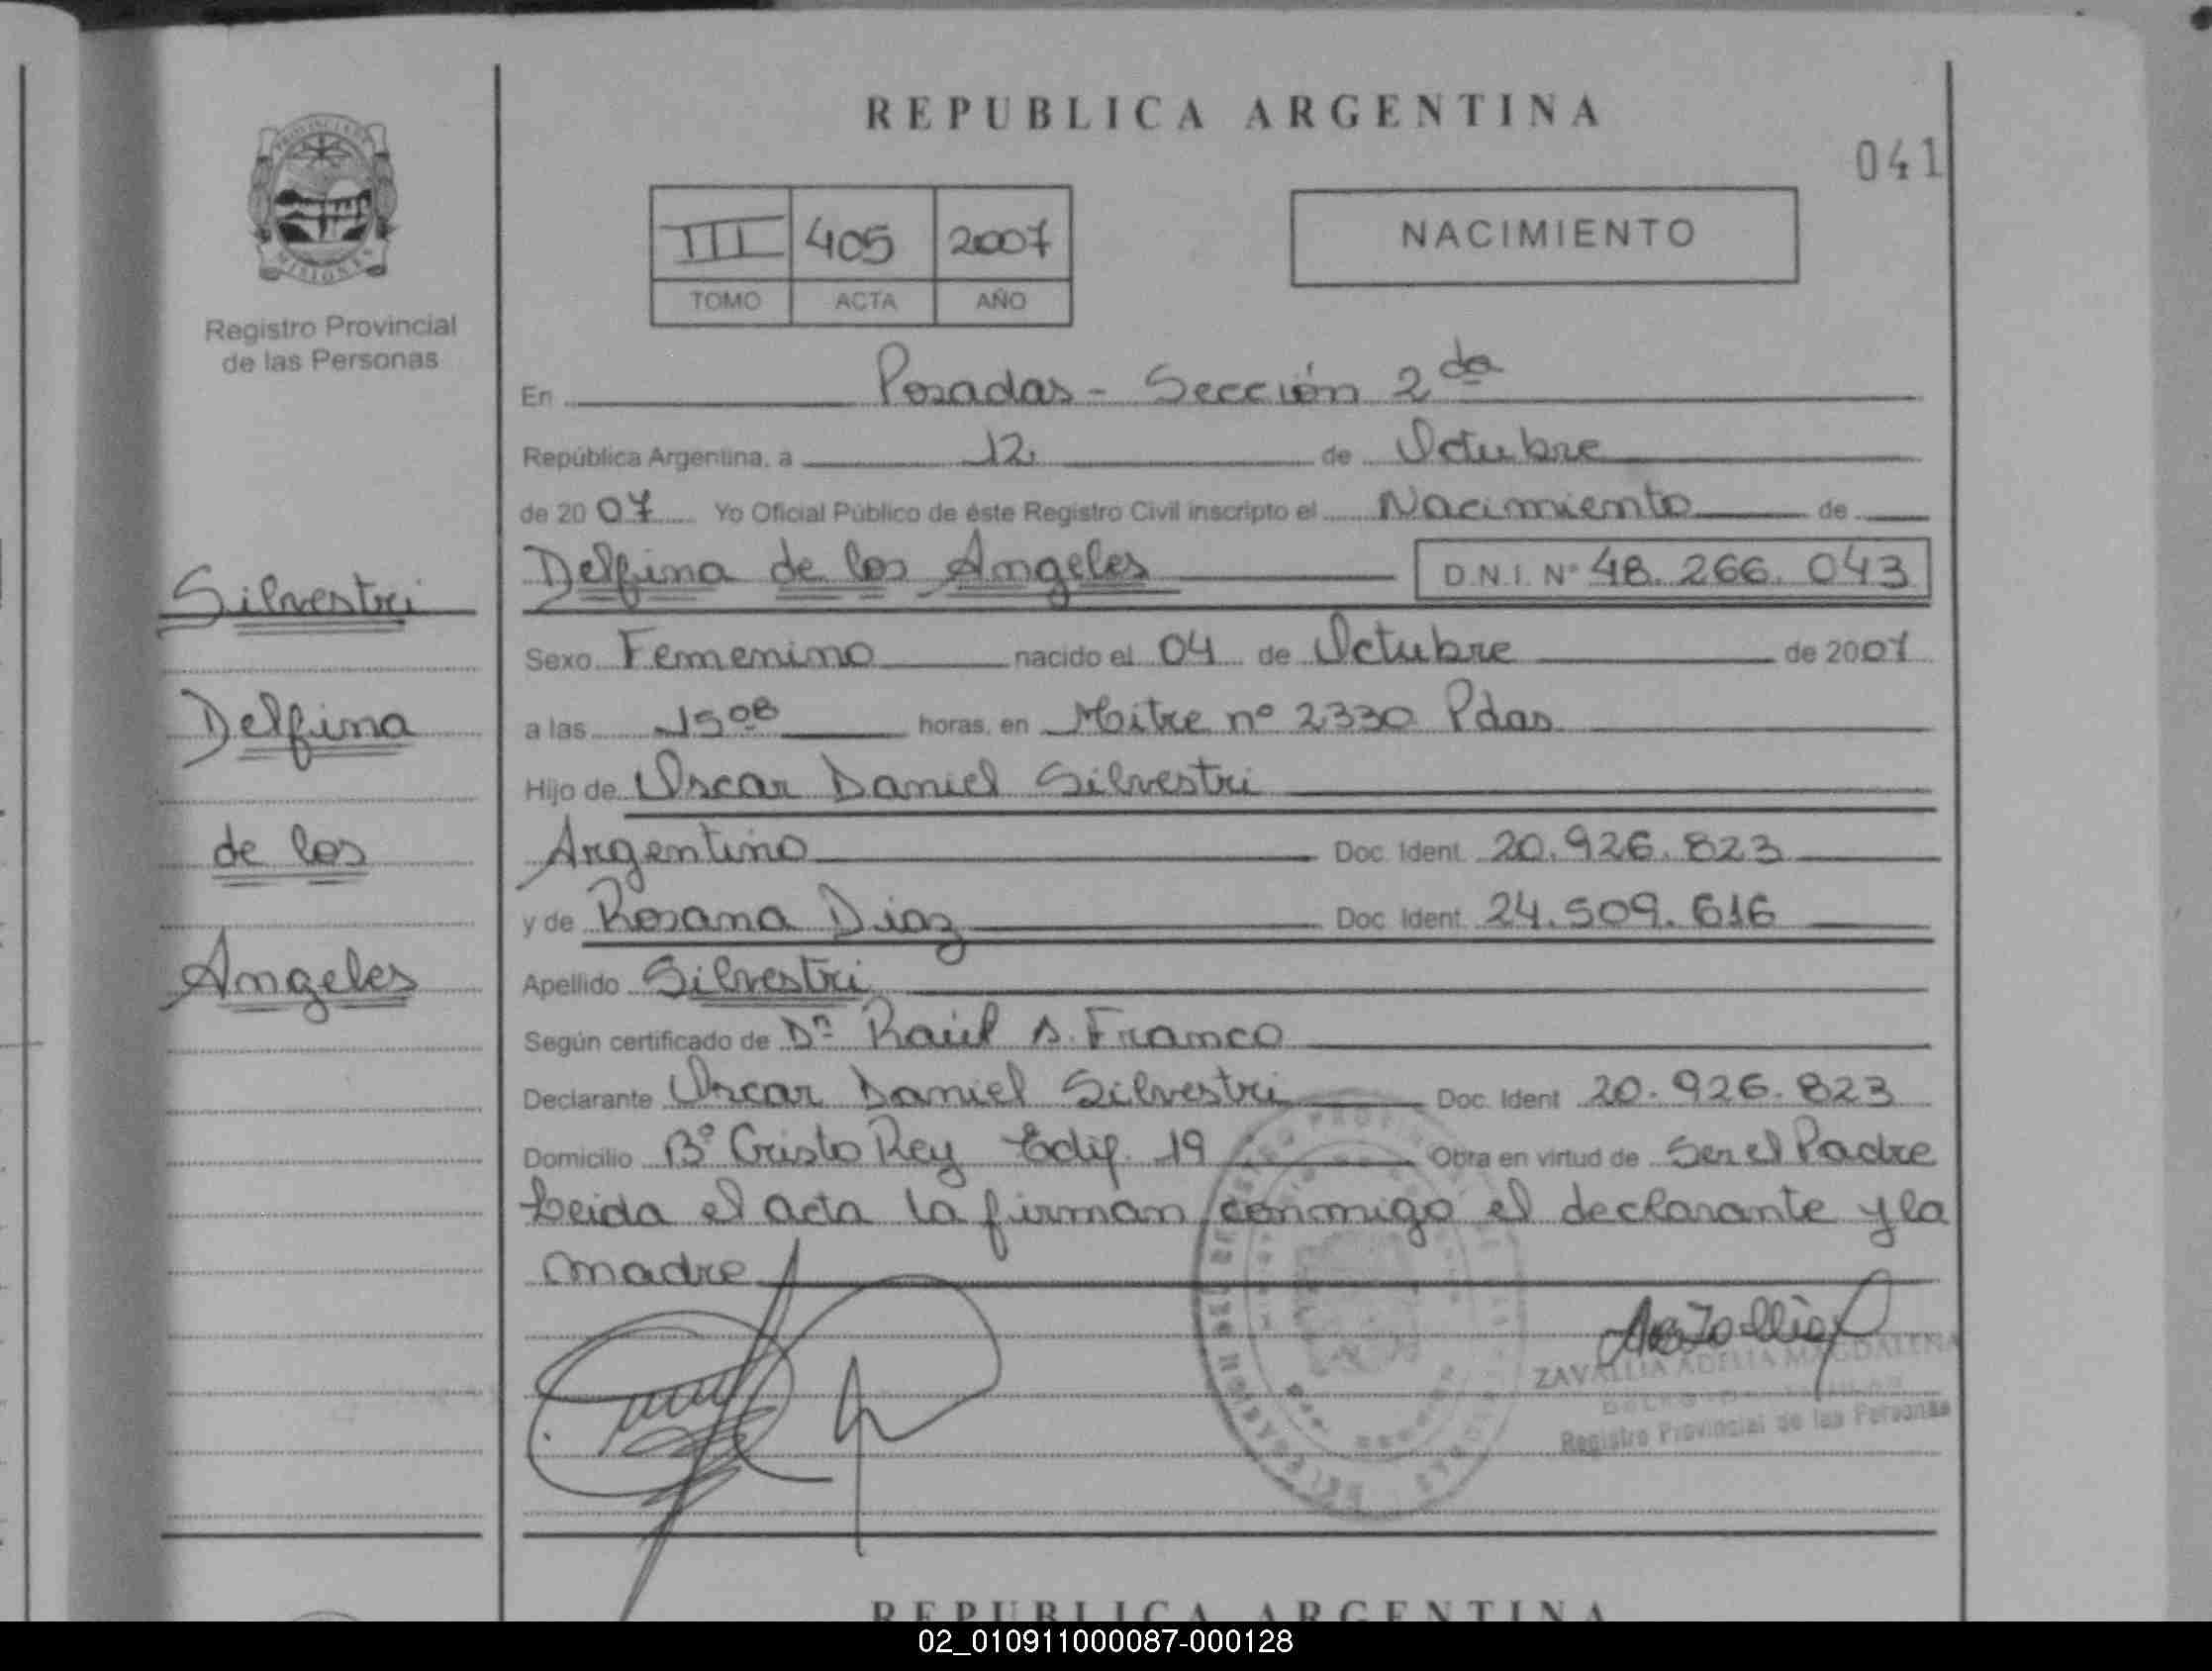 REPUBLICA ARGENTINA
041
PROVINCIA DE
MISIONES
Registro Provincial
de las Personas
III 405 2007
TOMO ACTA AÑO
NACIMIENTO
En Posadas - Sección 2da
República Argentina, a 12 de Octubre
de 2007 Yo Oficial Público de éste Registro Civil inscripto el Nacimiento de
Delfina de los Angeles D.N.I. Nº 48.266.043
Silvestri
Sexo Femenino nacido el 04 de Octubre de 2007
Delfina
a las 15 08 horas, en Mitre nº 2330 Pdas
Hijo de Oscar Daniel Silvestri
de los
Argentino Doc. Ident. 20.926.823
y de Rosana Diaz Doc. Ident. 24.509.616
Angeles
Apellido Silvestri
Según certificado de Dr Raúl A. Franco
Declarante Oscar Daniel Silvestri Doc. Ident 20.926.823
Domicilio Bº Cristo Rey Edif. 19 Obra en virtud de Ser el Padre
Leida el acta la firman conmigo el declarante y la
madre
ZAVALLIA ADELIA MAGDALENA
Registro Provincial de las Personas
REPUBLICA ARGENTINA
02_010911000087-000128